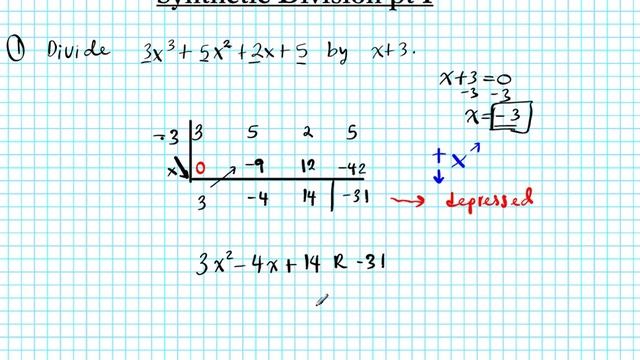 Synthetic Division pt 1
① Divide 3x³ + 5x² + 2x + 5 by x+3.
x+3 = 0
-3 -3
x = -3
-3 3 5 2 5
x 0 -9 12 -42
+ x
3 -4 14 -31 → depressed
3x² - 4x + 14 R -31